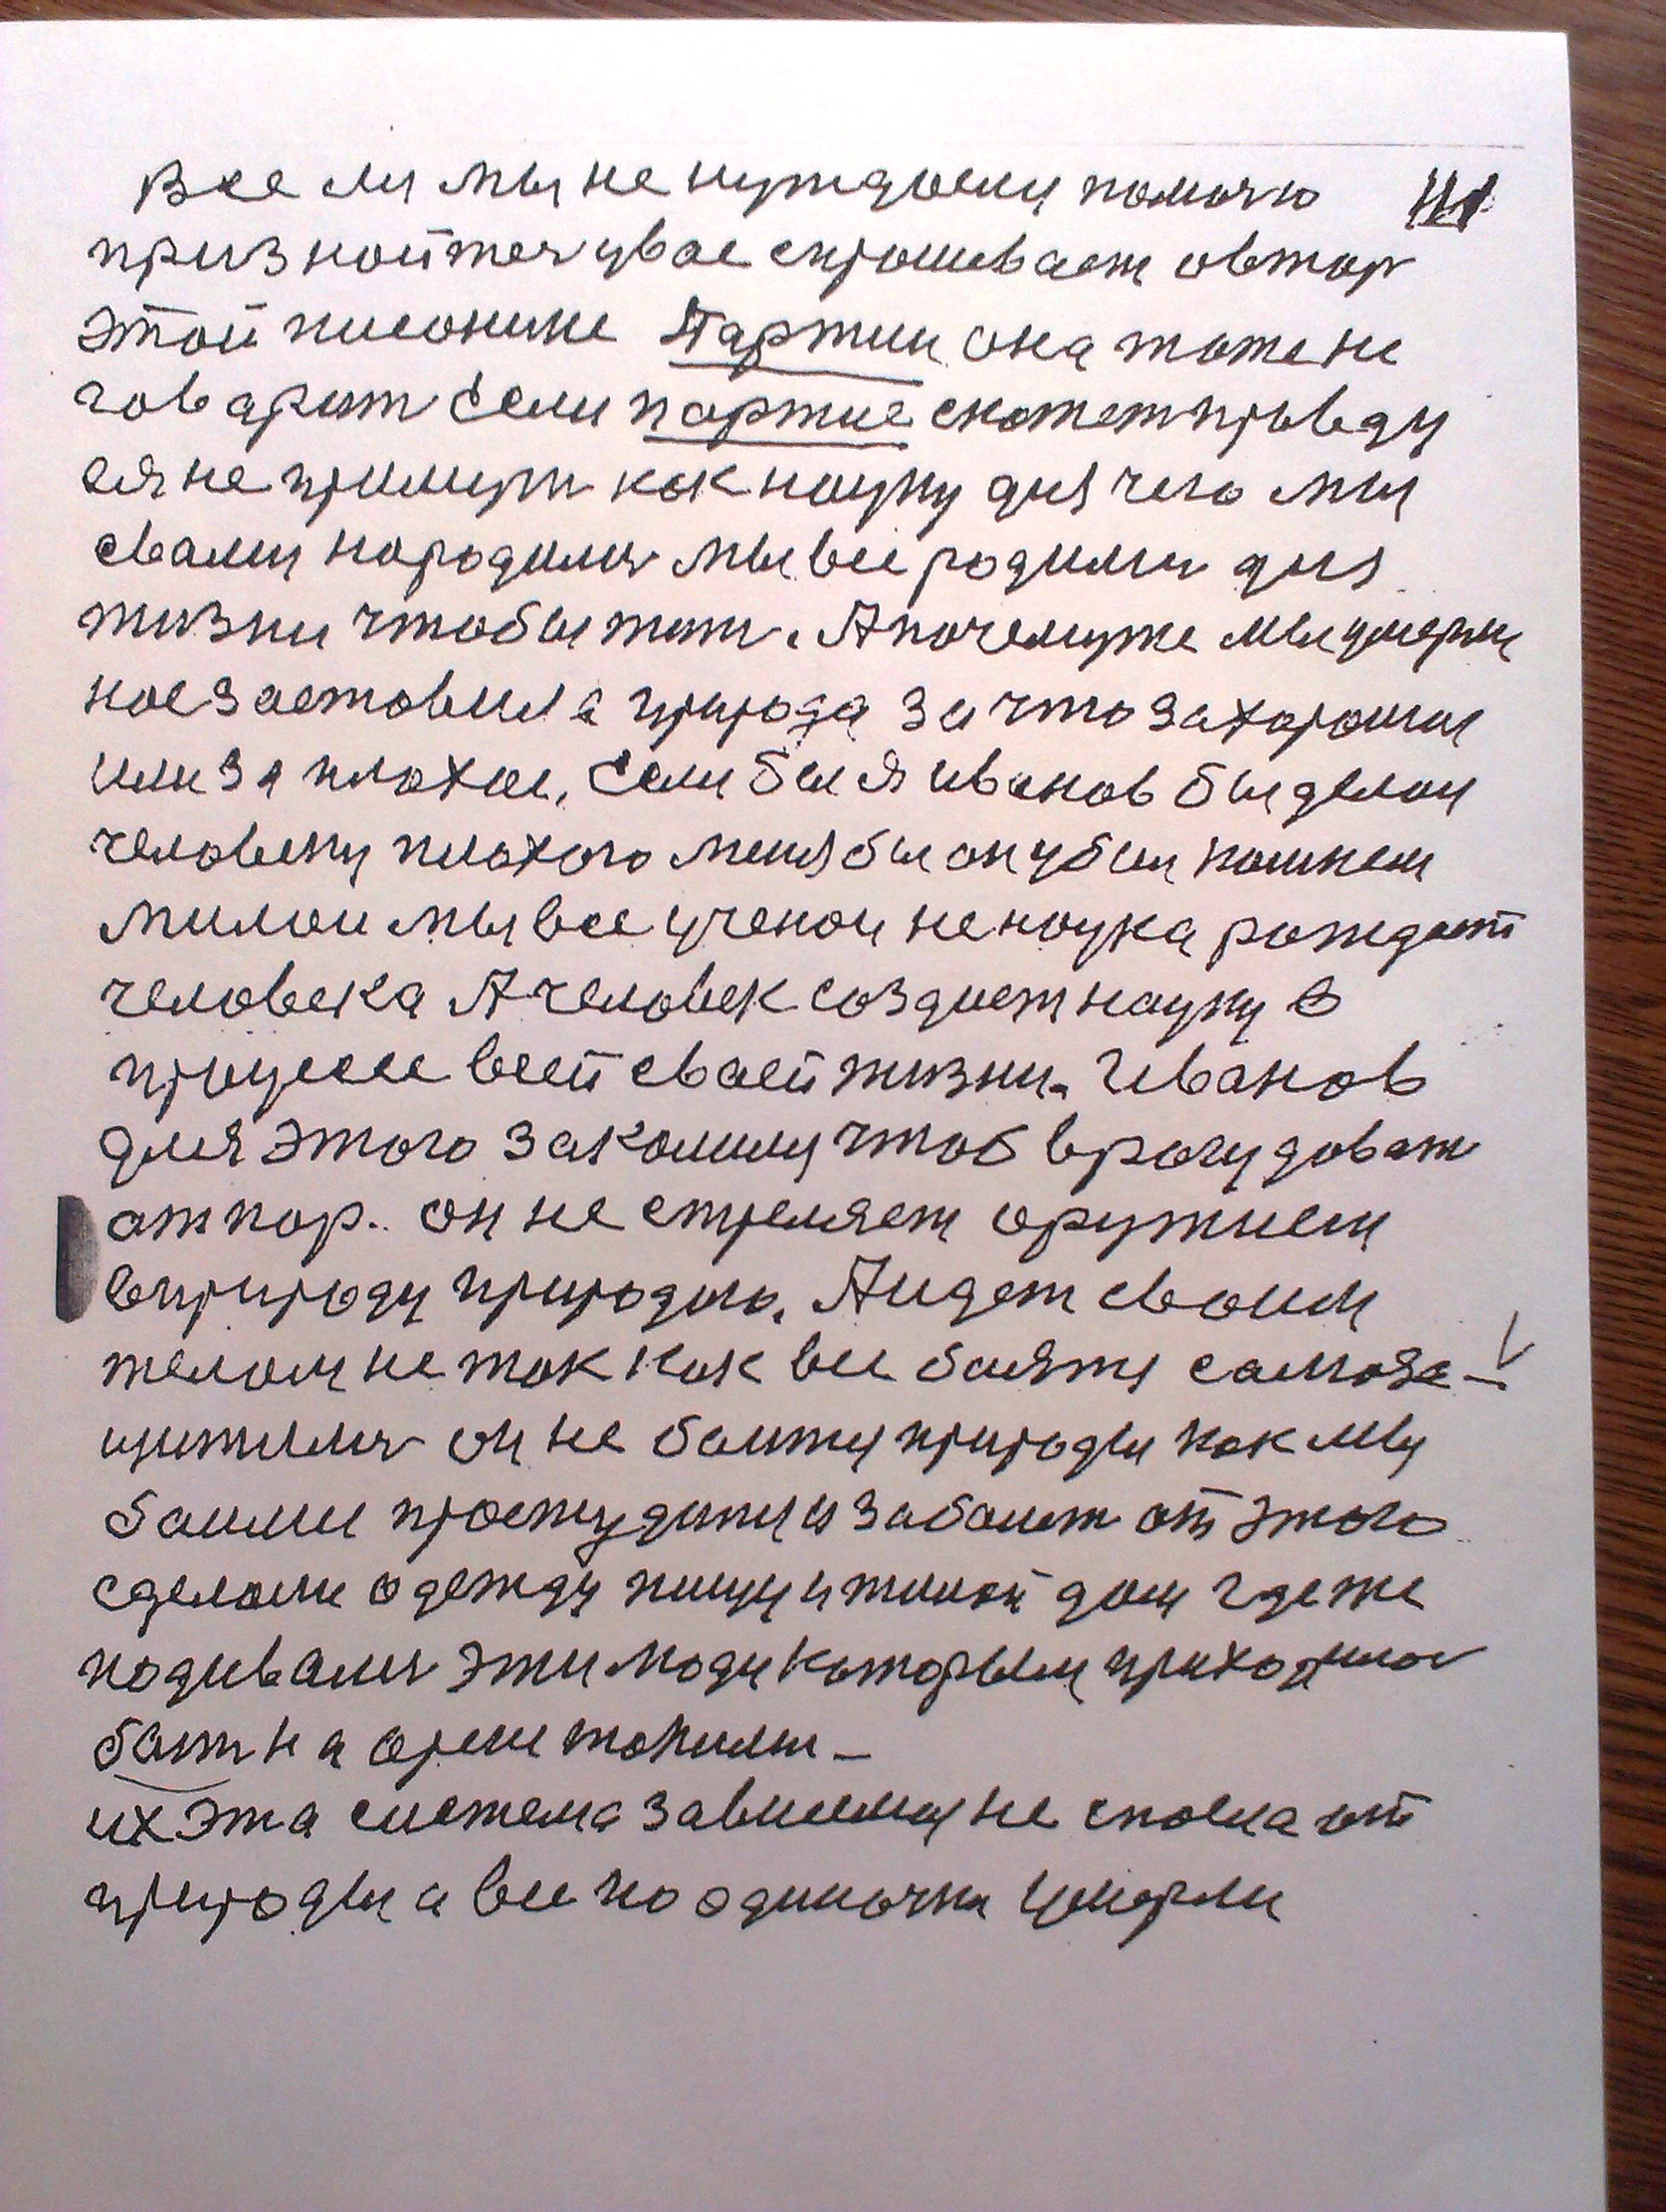 Все ли мы не нуждаемся помочю 111
признойтес у вас спрашивает овтор
этой писонине Партии она тоже не
говарит Если партие скажет правду
ея не примут как науку для чего мы
свами народилис мы все родилис для
жизни чтобы жит. А почемуже мы умерли
нос заставила природа за что за харошое
или за плохое. Если бы я Иванов бы делал
человеку плохого меня бы он убил камнем
милои мы все ученои не наука рождает
человека А человек создает науку в
процессе всей сваей жизни. Иванов
для этого закалился чтоб врагу доват
атпор. он не стреляет оружием
в природу природою. А идет своим
телом не так как все баятся самоза-
щитилис он не баится природы как мы
баимся простудится и заболет от этого
сделали одежду пищу и жилой дом где же
подевалис эти люди каторым приходилос
бат на арене
их эта система зависимая не спосла от
природы а все по одиночки умерли